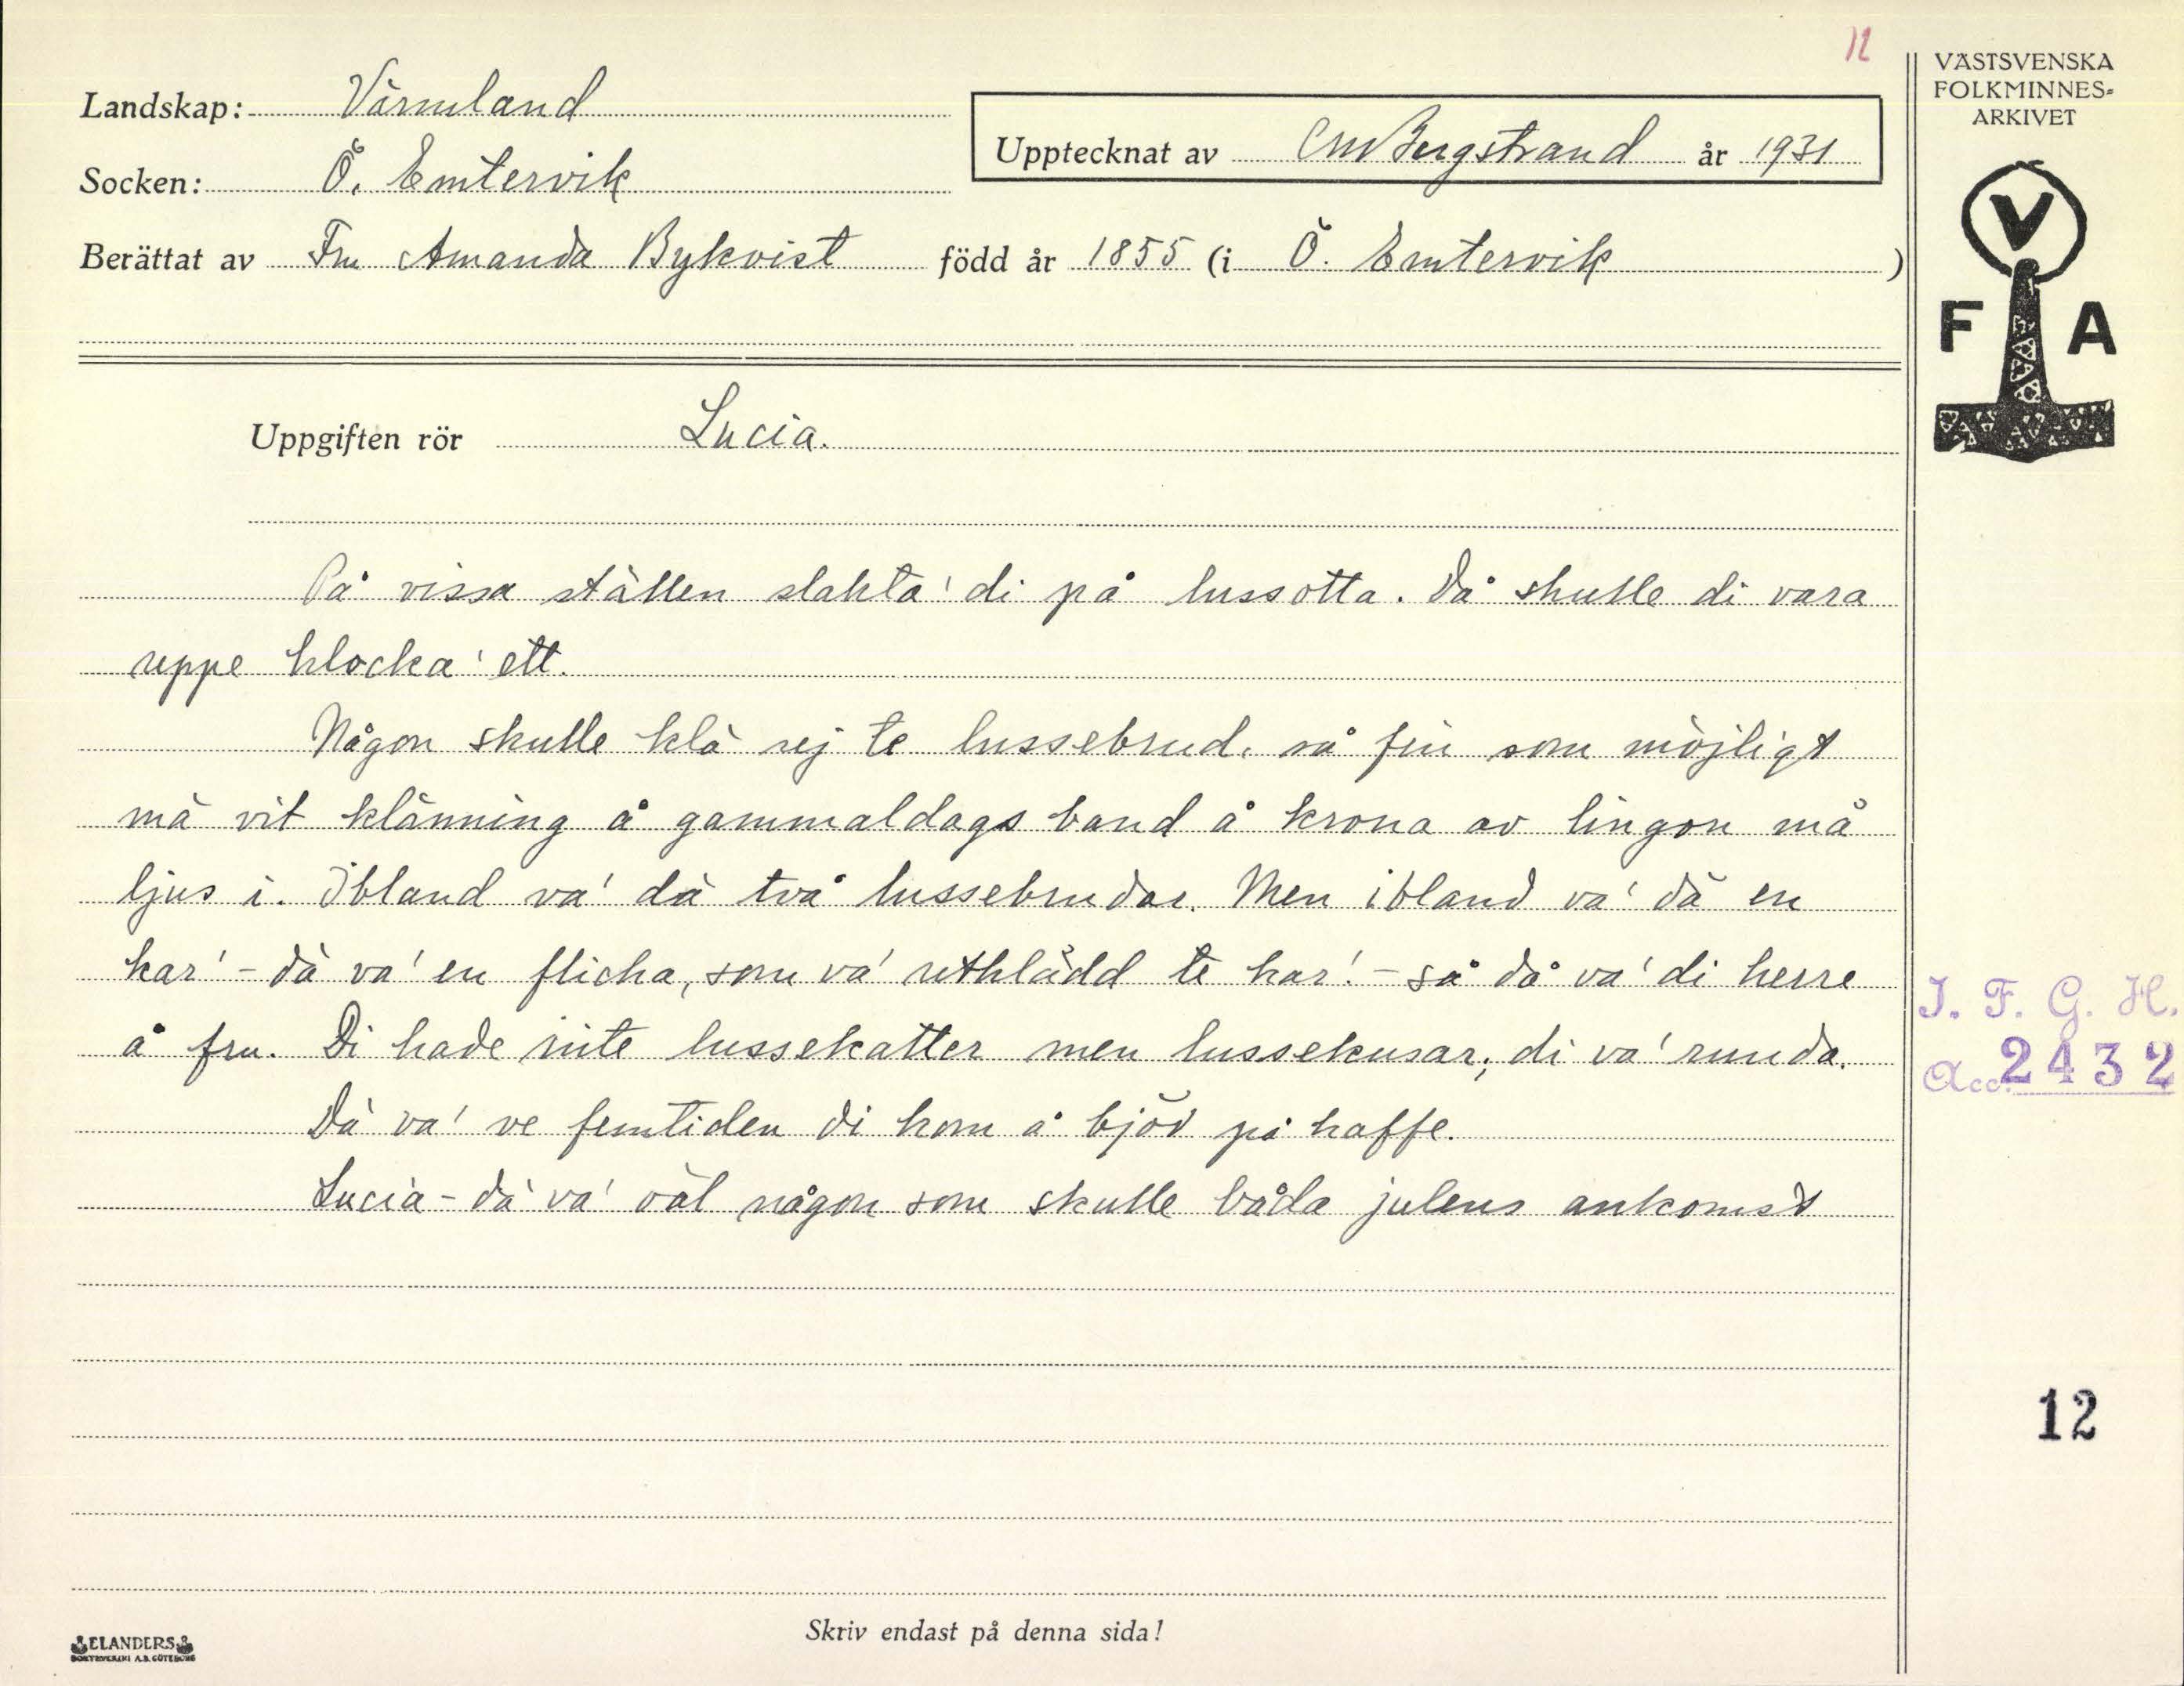 12
VÄSTSVENSKA
FOLKMINNES-
ARKIVET
Landskap: Värmland
Upptecknat av CM Bergstrand år 1931
Socken: Ö. Emtervik
Berättat av Fru Amanda Bykvist född år 1855 (i Ö. Emtervik )
V
F A
Uppgiften rör Lucia.
På vissa ställen slakta' di på lussotta. Då skulle di vara
uppe klocka' ett.
Någon skulle klä sej te lussebrud. så fin som möjligt
mä vit klänning å gammaldags band å krona av lingon mä
ljus i. Ibland va' dä två lussebrudar. Men ibland va' dä en
kar' - dä va' en flicka, som va' utklädd te kar! - så då va' di herre
å fru. Di hade inte lussekatter men lussekusar; di va' runda.
Dä va' ve femtiden di kom å bjöd på kaffe.
Lucia - dä va' väl någon som skulle båda julens ankomst
I. F. G. H.
Acc. 2432
12
Skriv endast på denna sida!
ELANDERS
BOKTRYCKERI A.B. GÖTEBORG